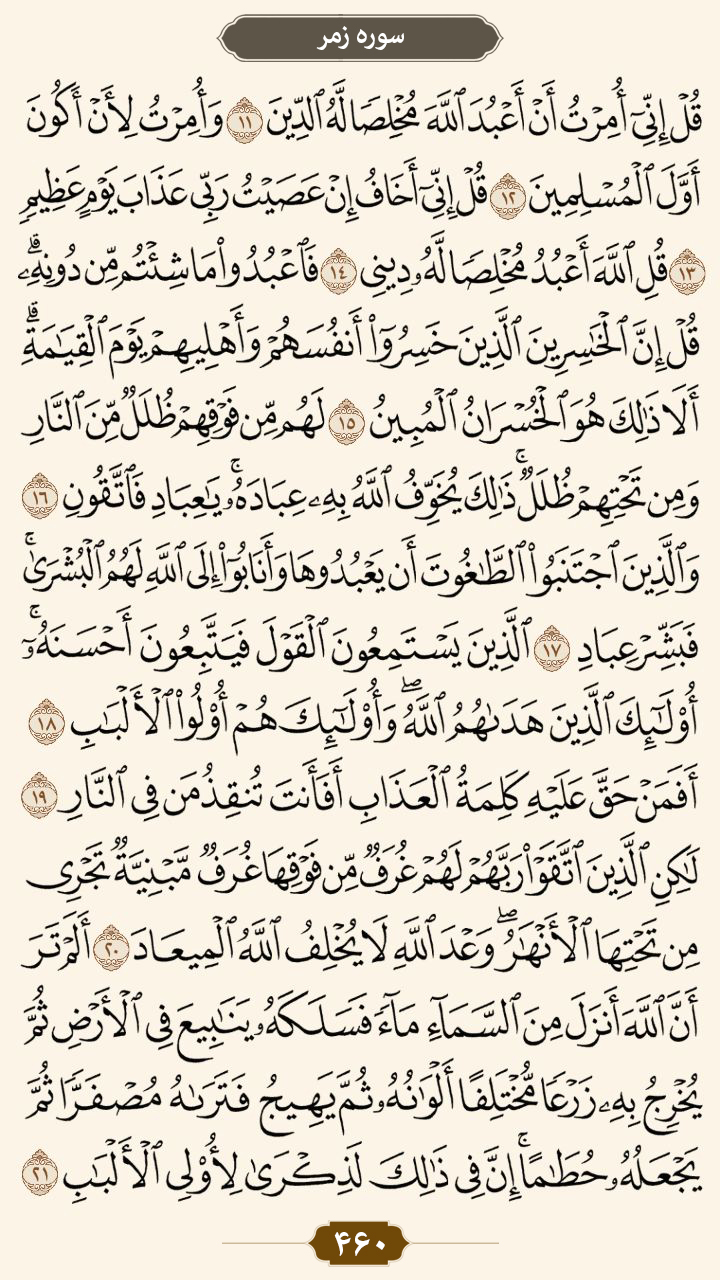 سوره زمر
قُلْ إِنِّيٓ أُمِرْتُ أَنْ أَعْبُدَ ٱللَّهَ مُخْلِصًا لَّهُ ٱلدِّينَ ١١ وَأُمِرْتُ لِأَنْ أَكُونَ
أَوَّلَ ٱلْمُسْلِمِينَ ١٢ قُلْ إِنِّيٓ أَخَافُ إِنْ عَصَيْتُ رَبِّي عَذَابَ يَوْمٍ عَظِيمٍ
١٣ قُلِ ٱللَّهَ أَعْبُدُ مُخْلِصًا لَّهُۥ دِينِي ١٤ فَٱعْبُدُوا۟ مَا شِئْتُم مِّن دُونِهِۦ ۗ
قُلْ إِنَّ ٱلْخَٰسِرِينَ ٱلَّذِينَ خَسِرُوٓا۟ أَنفُسَهُمْ وَأَهْلِيهِمْ يَوْمَ ٱلْقِيَٰمَةِ ۗ
أَلَا ذَٰلِكَ هُوَ ٱلْخُسْرَانُ ٱلْمُبِينُ ١٥ لَهُم مِّن فَوْقِهِمْ ظُلَلٌ مِّنَ ٱلنَّارِ
وَمِن تَحْتِهِمْ ظُلَلٌ ۚ ذَٰلِكَ يُخَوِّفُ ٱللَّهُ بِهِۦ عِبَادَهُۥ ۚ يَٰعِبَادِ فَٱتَّقُونِ ١٦
وَٱلَّذِينَ ٱجْتَنَبُوا۟ ٱلطَّٰغُوتَ أَن يَعْبُدُوهَا وَأَنَابُوٓا۟ إِلَى ٱللَّهِ لَهُمُ ٱلْبُشْرَىٰ ۚ
فَبَشِّرْ عِبَادِ ١٧ ٱلَّذِينَ يَسْتَمِعُونَ ٱلْقَوْلَ فَيَتَّبِعُونَ أَحْسَنَهُۥٓ ۚ
أُو۟لَٰٓئِكَ ٱلَّذِينَ هَدَىٰهُمُ ٱللَّهُ ۖ وَأُو۟لَٰٓئِكَ هُمْ أُو۟لُوا۟ ٱلْأَلْبَٰبِ ١٨
أَفَمَنْ حَقَّ عَلَيْهِ كَلِمَةُ ٱلْعَذَابِ أَفَأَنتَ تُنقِذُ مَن فِي ٱلنَّارِ ١٩
لَٰكِنِ ٱلَّذِينَ ٱتَّقَوْا۟ رَبَّهُمْ لَهُمْ غُرَفٌ مِّن فَوْقِهَا غُرَفٌ مَّبْنِيَّةٌ تَجْرِي
مِن تَحْتِهَا ٱلْأَنْهَٰرُ ۖ وَعْدَ ٱللَّهِ لَا يُخْلِفُ ٱللَّهُ ٱلْمِيعَادَ ٢٠ أَلَمْ تَرَ
أَنَّ ٱللَّهَ أَنزَلَ مِنَ ٱلسَّمَآءِ مَآءً فَسَلَكَهُۥ يَنَٰبِيعَ فِي ٱلْأَرْضِ ثُمَّ
يُخْرِجُ بِهِۦ زَرْعًا مُّخْتَلِفًا أَلْوَٰنُهُۥ ثُمَّ يَهِيجُ فَتَرَىٰهُ مُصْفَرًّا ثُمَّ
يَجْعَلُهُۥ حُطَٰمًا ۚ إِنَّ فِي ذَٰلِكَ لَذِكْرَىٰ لِأُو۟لِي ٱلْأَلْبَٰبِ ٢١
۴۶۰